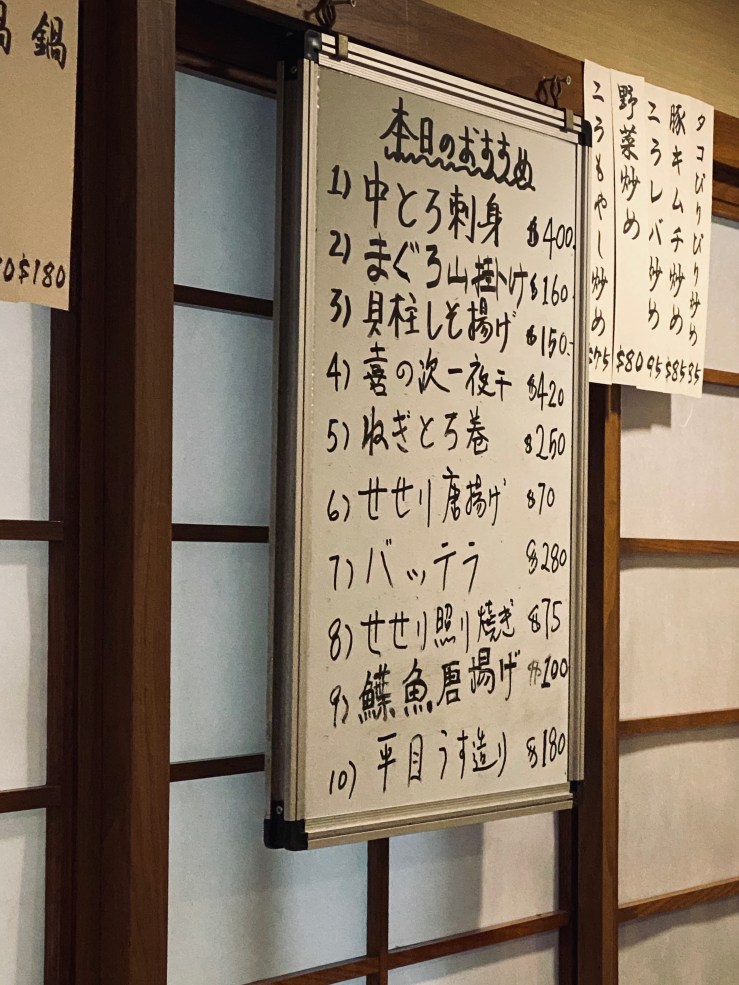 鍋
$180
本日のおすすめ
1) 中とろ刺身 $400.
2) まぐろ山掛け $160
3) 貝柱しそ揚げ $150.-
4) 喜の次一夜干 $420
5) ねぎとろ巻 $250
6) せせり唐揚げ $70
7) バッテラ $280
8) せせり照り焼き $75
9) 鰈魚唐揚げ $100
10) 平目うす造り $180
タコぴりぴり炒め
豚キムチ炒め $85
ニラレバ炒め 95
野菜炒め $80
ニラもやし炒め $75